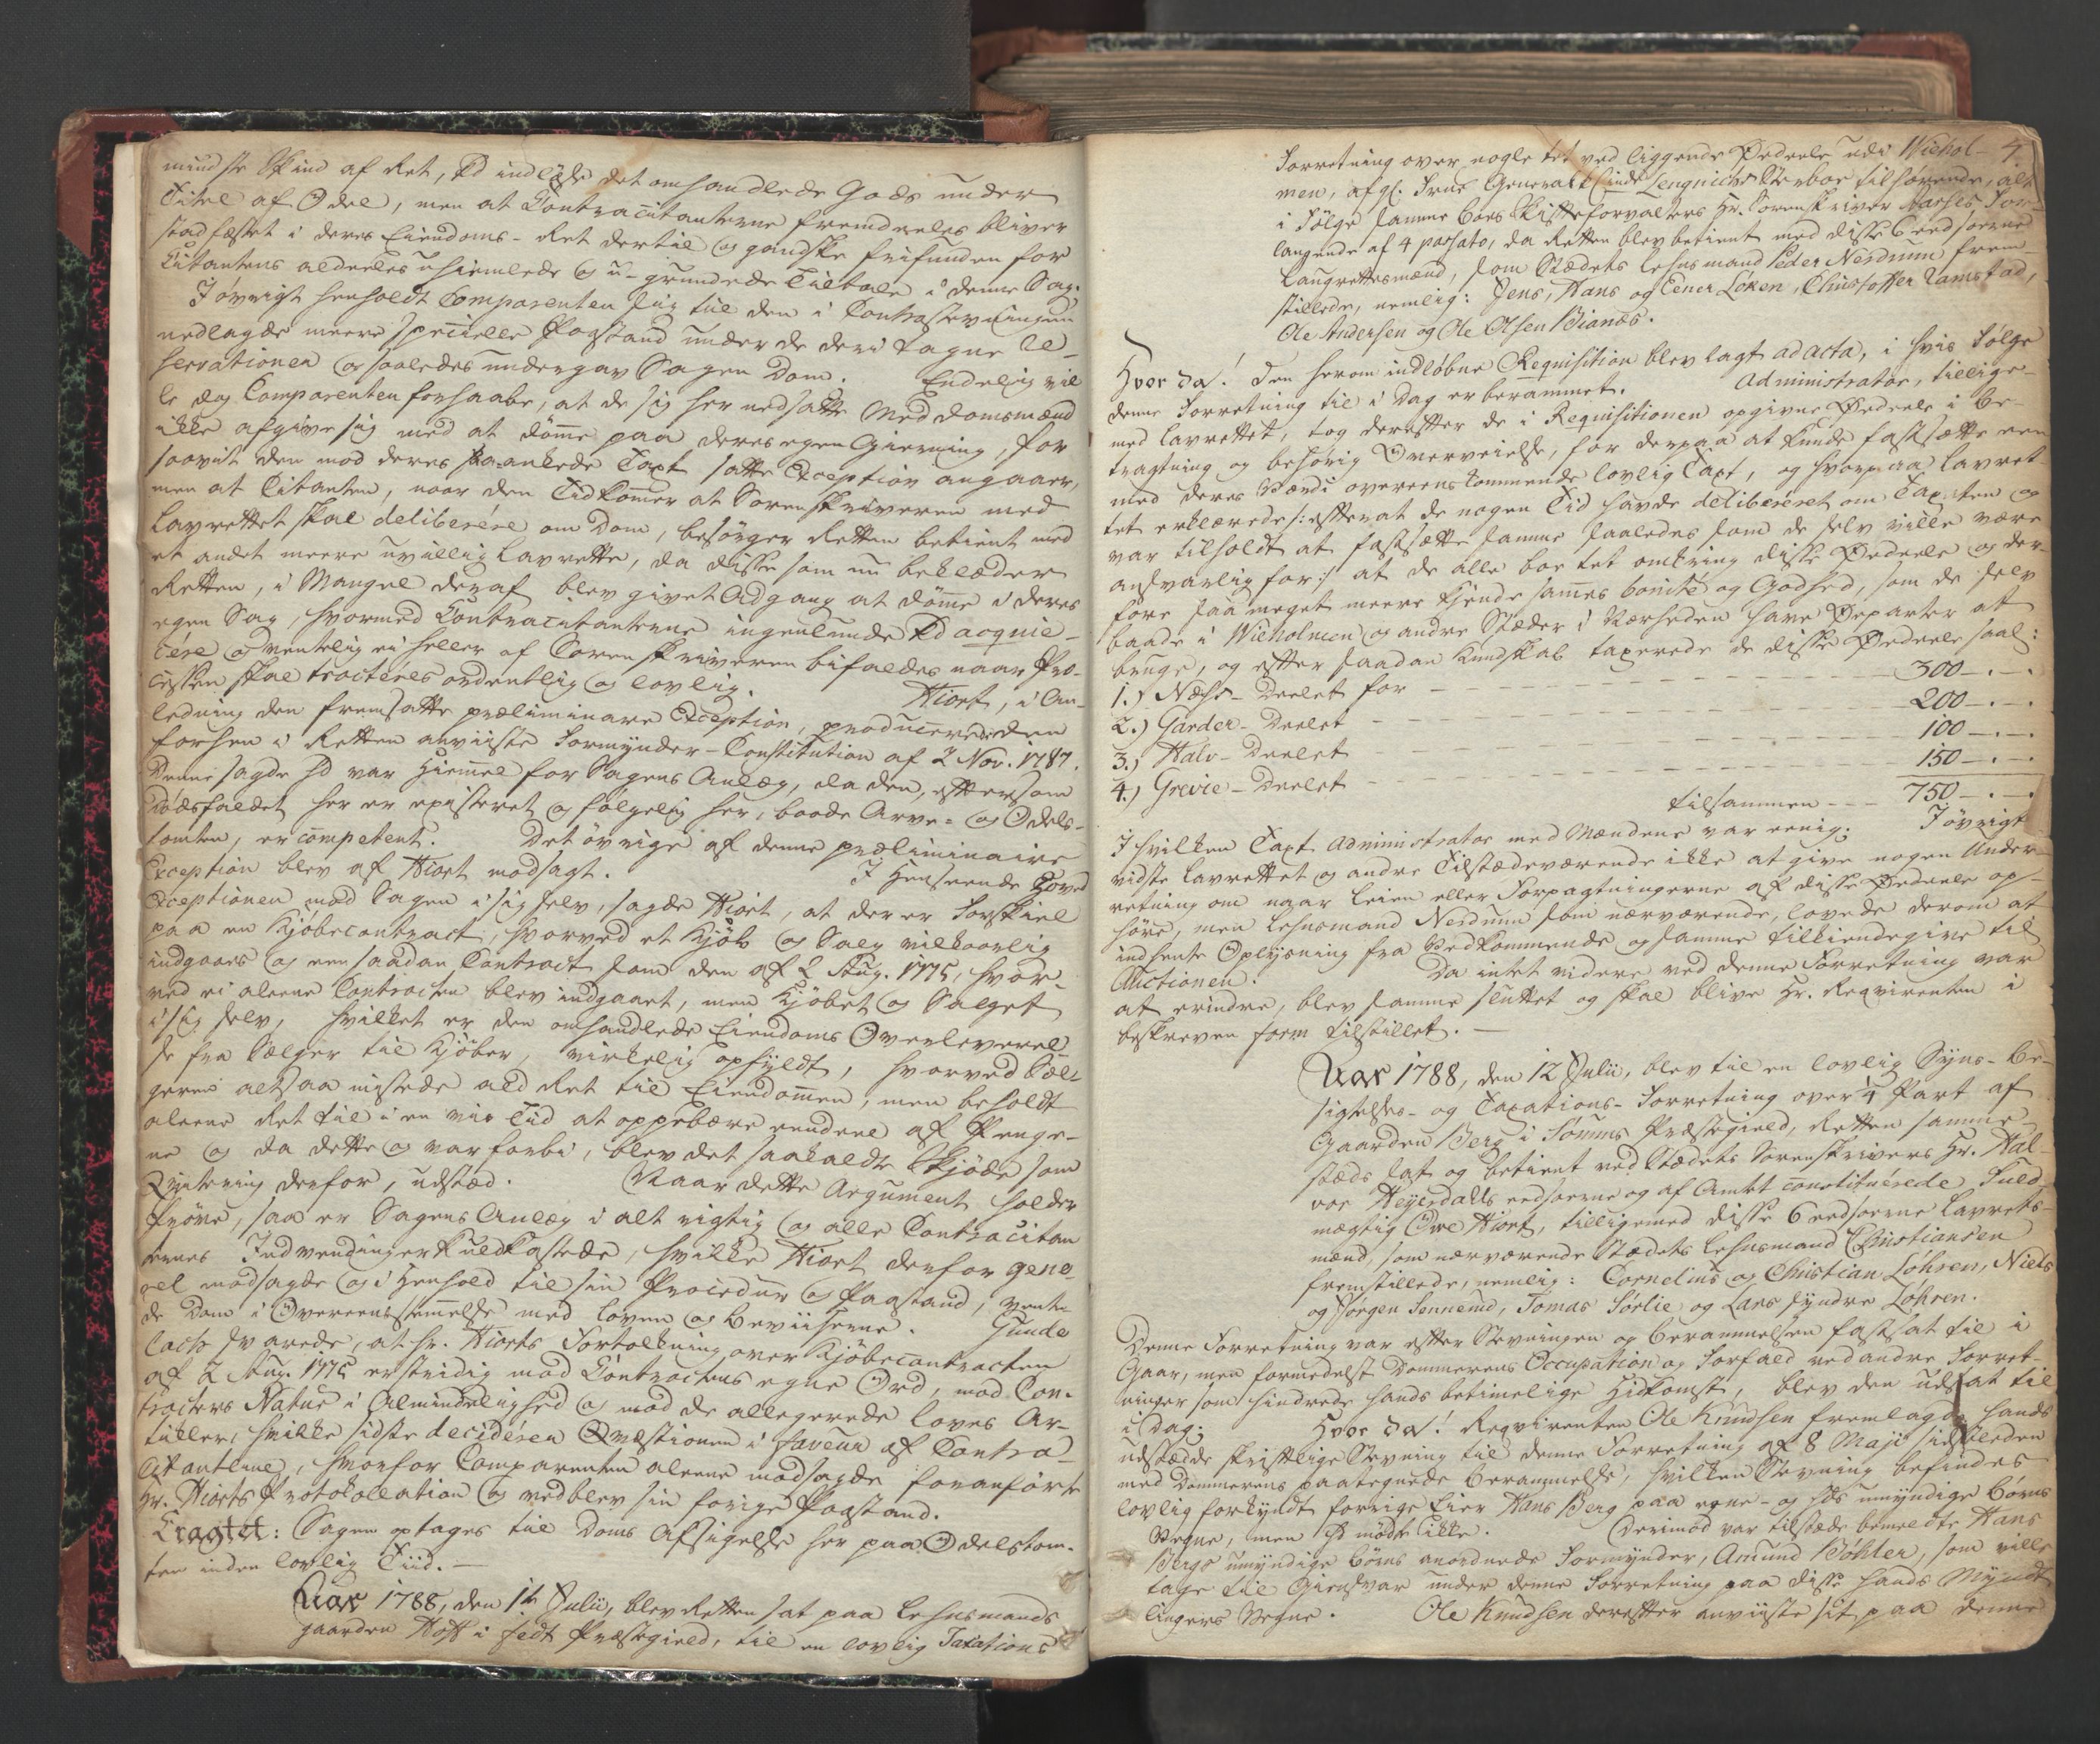 mindste Skind af Ret, Ed indlyse det omhandlede Gods under
Titel af Odel, men at Contracitanterne fremdeeles bliver
stadfæstet i deres Eiendoms-Ret dertil og gandske frifunden for
Citantens aldeeles uhiemlede og u-grundede Tiltale i denne Sag.
I øvrigt henholdt Comparenten sig til den i Contrastevningen
nedlagde meere specielle Paastand under de deri tagne Re-
servationer og saaledes undergav Sagen Dom. Endelig vil
le og Comparenten forhaabe, at de sig her nedsatte Meddomsmænd
ikke afgive sig med at dømme paa deres egen Gierning, for
saavit den mod deres paa-ankede Taxt satte Exception angaaer,
men at Citanten, naar den Tid kommer at Sorenskriveren med
Lavrettet skal deliberére om Dom, besørger Retten betient med
et andet meere uvillig Lavrette, da disse som nu beklæder
Retten, i Mangel deraf blev givet Adgang at dømme i deres
egen Sag, hvormed Contracitanterne ingenlunde Ed acquie-
cére og ventelig ei heller af Sorenskriveren bifaldes naar Pro-
cessen skal tractéres ordentlig og lovlig. Hiort, i An-
ledning den fremsatte præliminare Exception, producerede den
forhen i Retten anviiste Formynder-Constitution af 2 Nov. 1787.
Denne sagde Hd var Hiemmel for Sagens Anlæg, da den, effter som
Dødsfaldet her er existeret og følgelig her, baade Arve- og Odels-
tomten, er competent. Det øvrige af denne præliminaire
Exception blev af Hiort modsagt. I Henseende Hoved
Exceptionen mod Sagen i sig selv, sagde Hiort, at der er Forskiel
paa en Kjøbecontract, hvorved et Kjøb og Salg vilkaarlig
indgaaes og een saadan Contract som den af 2 Aug. 1775, hvor-
ved ei aleene Contracten blev indgaaet, men Kjøbet og Salget
i sig selv, hvilket er den omhandlede Eiendoms Overleverel-
se fra Sælger til Kjøber, virkelig opfyldt, hvorved Sæl-
gerne altsaa mistede ald Ret til Eiendommen, men beholdt
aleene Ret til i en vis Tid at oppebære endeel af Penge-
ne og da dette og var forbi, blev det saakaldte Skjøde som
Qvitering derfor, udstæd. Naar dette Argument holder
Prøve, saa er Sagens Anlæg i alt rigtig og alle Contracitan
ternes Indvendinger kuldkastede, hvilke Hiort derfor gene-
rel modsagde og i Henhold til sin Procedur og Paastand, vente-
de Dom i Overeensstemmelse med Loven og Beviiserne. Gunde
lach svarede, at Hr. Hiorts Fortolkning over Kjøbecontracten
af 2 Aug. 1775 er stridig mod Contractens egne Ord, mod Con-
tracters Natur i Almindelighed og mod de allegerede Loves Ar-
tikler, hvilke sidste decidéren Qvæstionen i faveur af Contra-
citanterne, hvorfor Comparenten aleene modsagde foranførte
Hr. Hiorts Protokollation og vedblev sin forige Paastand.
Eragtet: Sagen optages til Doms Afsigelse her paa Odelstom-
ten inden lovlig Tiid.—
Aar 1788, den 1te Julii, blev Retten sat paa Lehnsmands
gaarden Hoff i Fedt Præstegield, til en lovlig Taxations
4
Forretning over nogle tæt ved liggende Ødeeele udi Wiehol-
men, afgl. Frue Generalb Linde Lengnichs Sterboe tilhørende, alt
i Følge samme Boes Skifteforvalters Hr. Sorenskriver Aarses For-
langende af 4 passato, da Retten blev betient med disse 6 eedsoerne
Laugrettesmænd, som Stædets Lehnsmand Peder Nerdrum frem-
stillede, nemlig: Jens, Hans og Einer Løken, Christoffer Ramstad,
Ole Andersen og Ole Olsen Bianes.
Hvor da! Den herom indløbne Requisition blev lagt ad acta, i hvis Følge
denne Forretning til i Dag er berammet. Administrator, tillige-
med Lavrettet, tog derefter de i Requisitionen opgivne Ødeele i Be-
tragtning og behørig Overveielse, for derpaa at kunde fastsætte een
med deres Værdi overeenskommende lovlig Taxt, og hvorpaa Lavret-
tet erklærede /: effter at de nogen Tid havde deliberéret om Taxten og
var tilholdt at fastsætte samme saaledes som de selv ville være
ansvarlig for :/ at de alle boe tet omkring disse Ødeele og der-
fore saa meget meere kjende sammes bonité og Godhed, som de selv
baade i Wieholmen og andre Stæder i Nærheden have Øeparter at
bruge, og effter saadan Kundskab taxerede de disse Ødeele saal:
1.) Næhs-Deelet for — 300—.—.
2.) Garder-Deelet — 200—.—.
3.) Halv-Deelet — 100—.—.
4.) Grevie-Deelet — 150—.—.
tilsammen - - - 750—.—.
I hvilken Taxt Administrator med Mændene var eenig; I øvrigt
vidste Lavrettet og andre Tilstædeværende ikke at give nogen Under-
retning om naar Leien eller Forpagtningerne af disse Ødeele op-
høre, men Lehnsmand Nerdrum som nærværende, lovede derom at
indhente Oplysning fra Vedkommende og samme tilkiendegive til
Auctionen. Da intet videre ved denne Forretning var
at erindre, blev samme sluttet og skal blive Hr. Reqvirenten i
beskreven form tilstillet. —
Aar 1788, den 12 Julii, blev til en lovlig Syns-Be-
sigtelses- og Taxations-Forretning over 1/4 Part af
Gaarden Berg i Sørums Præstegield, Retten samme-
stæds sat og betient ved Stædets Sorenskrivers Hr. Hal-
vor Heyerdalls eedsoerne og af Amtet constituérede Fuld-
mægtig Ove Hiort, tilligemed disse 6 eedsoerne Lavrets-
mænd, som nærværende Stædets Lehnsmand Christiansen
fremstillede, nemlig: Cornelius og Christian Løhren, Niels
og Jørgen Sennerud, Tomas Sørlie og Lars syndre Løhren.
Denne Forretning var effter Stevningen og Berammelsen fastsat til i
Gaar, men formedelst Dommerens Occupation og Forfald ved andre Forret-
ninger som hindrede hands betimelige Hidkomst, blev den udsat til
i Dag; Hvor da! Reqvirenten Ole Knudsen fremlagde hands
udstædde skriftlige Stevning til denne Forretning af 8 Maji sidstleden
med Dommerens paategnede Berammelse, hvilken Stevning befindes
lovlig forkyndt forrige Eier Hans Berg paa egne- og hds umyndige Børns
Vegne, men Hd mødte ikke. Derimod var tilstæde bemeldte Hans
Bergs umyndige Børns anordnede Formynder, Amund Bøhler, som ville
tage til Giensvar under denne Forretning paa disse hands Mynd-
lingers Vegne. Ole Knudsen derefter anviiste sit paa denne